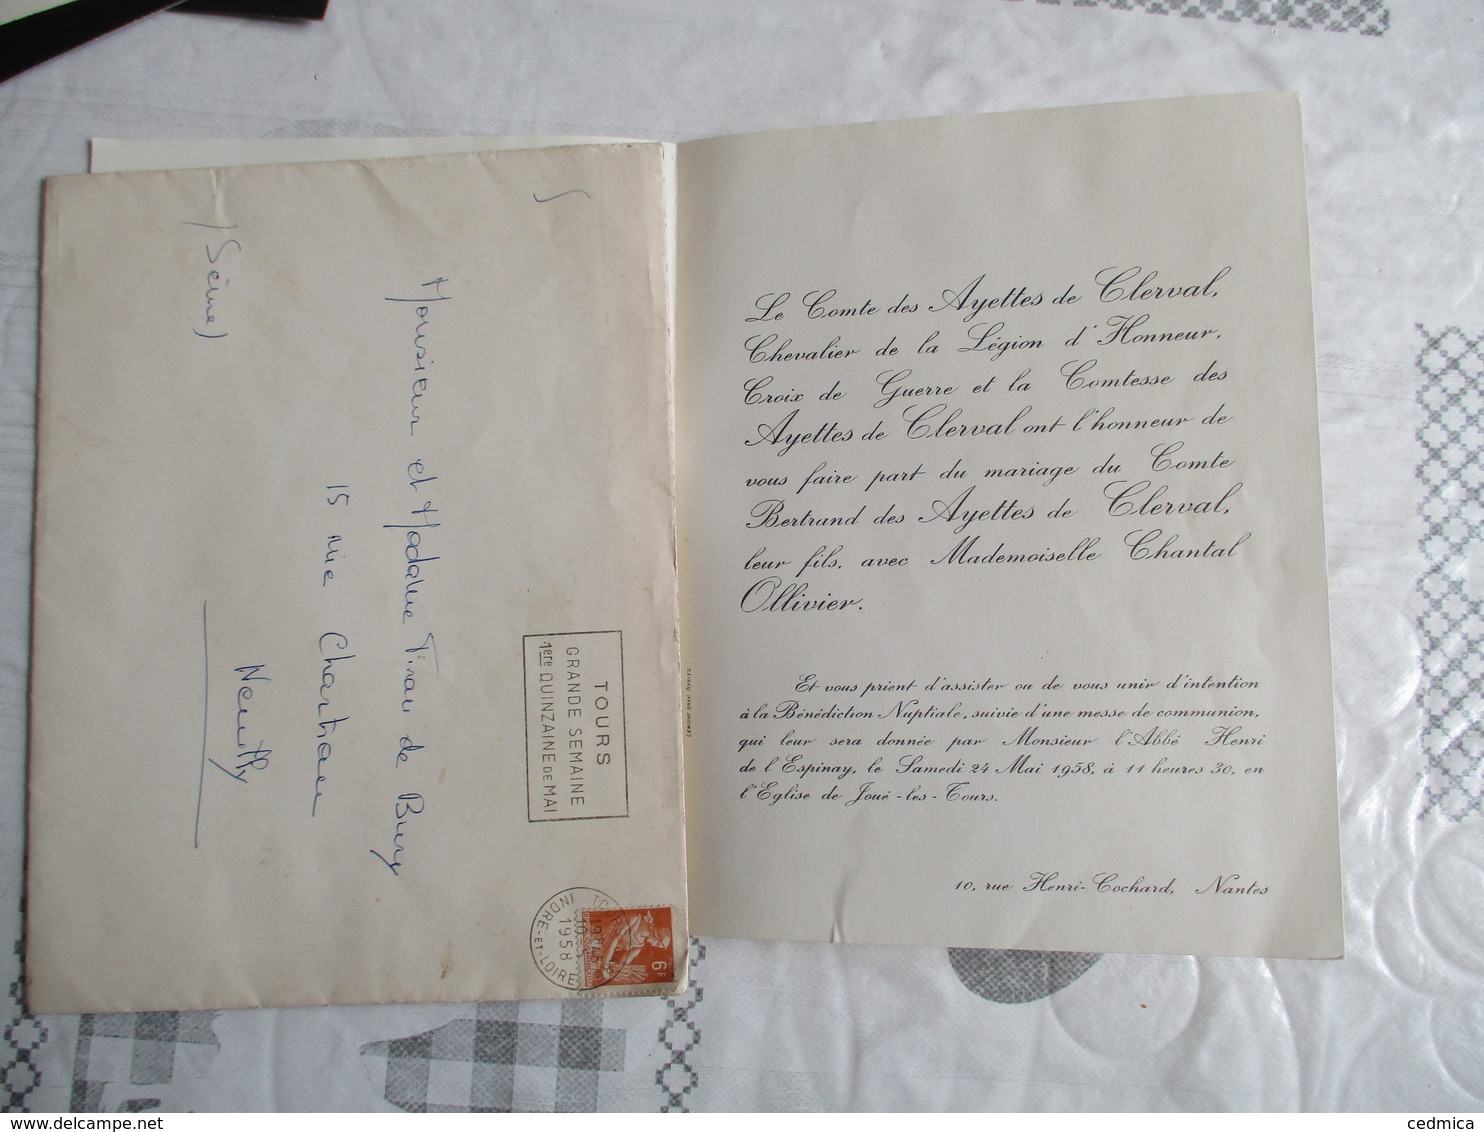 Le Comte des Ayettes de Clerval,
Chevalier de la Légion d'Honneur,
Croix de Guerre et la Comtesse des
Ayettes de Clerval ont l'honneur de
vous faire part du mariage du Comte
Bertrand des Ayettes de Clerval,
leur fils, avec Mademoiselle Chantal
Ollivier.
Et vous prient d'assister ou de vous unir d'intention
à la Bénédiction Nuptiale, suivie d'une messe de communion,
qui leur sera donnée par Monsieur l'Abbé Henri
de l'Espinay, le Samedi 24 Mai 1958, à 11 heures 30, en
l'Eglise de Joué-les-Tours.
10, rue Henri-Cochard, Nantes
TOURS
GRANDE SEMAINE
1ere QUINZAINE DE MAI
INDRE-ET-LOIRE
1958
6F
Monsieur et Madame de Bury
15 rue
Neuilly
(Seine)
www.delcampe.net
cedmica